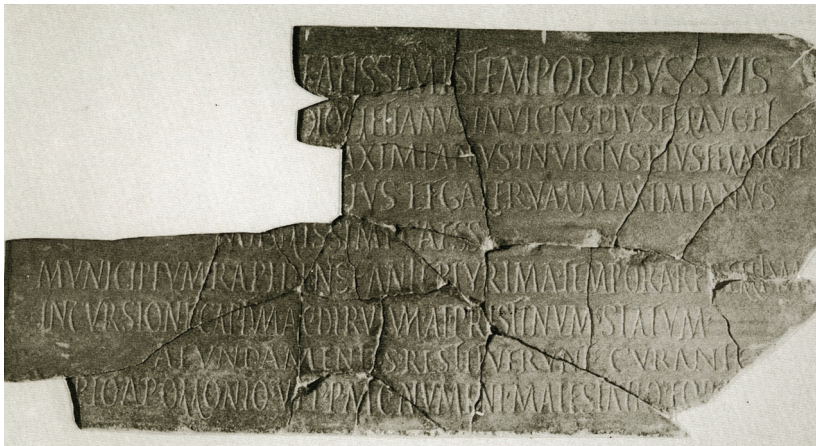 ATISSIMISTEMPORIBVSSVIS
DIOCLETIANVSINVICTVSPIVSFELAVGET
AXIMIANVSINVICTVSPIVSFELAVGET
TIVSETGALERVALMAXIMIANVS
NOBILISSIMICAESS
MVNICIPIVMRAPIDENSEANTEPLVRIMATEMPORAREBELLIVM
INCVRSIONECAPTVMACDIRVTVMADPRISTINVMSTATVM
AFVNDAMENTISRESTITVERVNTCVRANTE
PIOAPOLLONIOVEPPMCNVMINIMAIESTATIQEOR